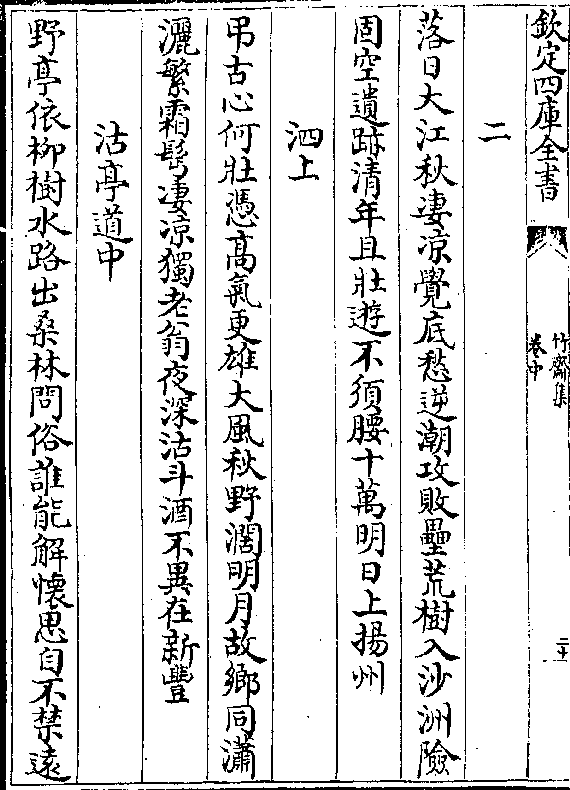 欽定四庫全書
竹齋集
卷中
二十
二
落日大江秋凄涼覺底愁逆潮攻敗壘荒樹入沙洲險
固空遺跡清年且壯遊不須腰十萬明日上揚州
泗上
弔古心何壯憑髙氣更雄大風秋野濶明月故鄉同瀟
灑繁霜髩凄涼獨老翁夜深沽斗酒不異在新豐
沽亭道中
野亭依柳樹水路出桑林問俗誰能解懐思自不禁逺